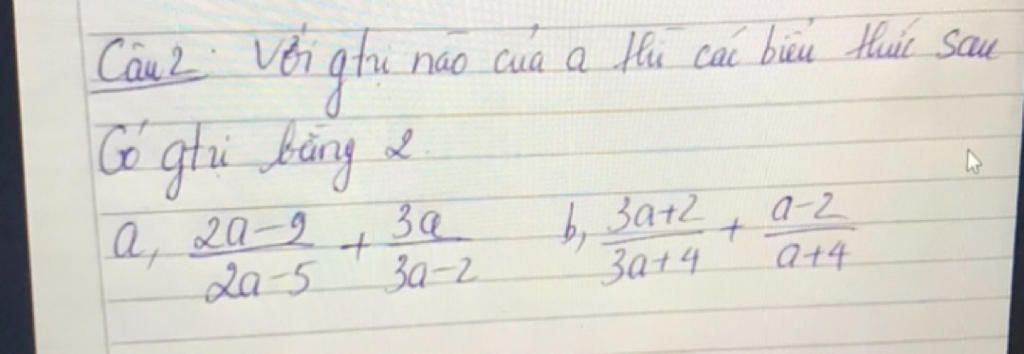 Câu 2: Với gtrị nào của a thì các biểu thức sau
Có gtrị bằng 2.
a, \frac{2a-9}{2a-5} + \frac{3a}{3a-2} b, \frac{3a+2}{3a+4} + \frac{a-2}{a+4}